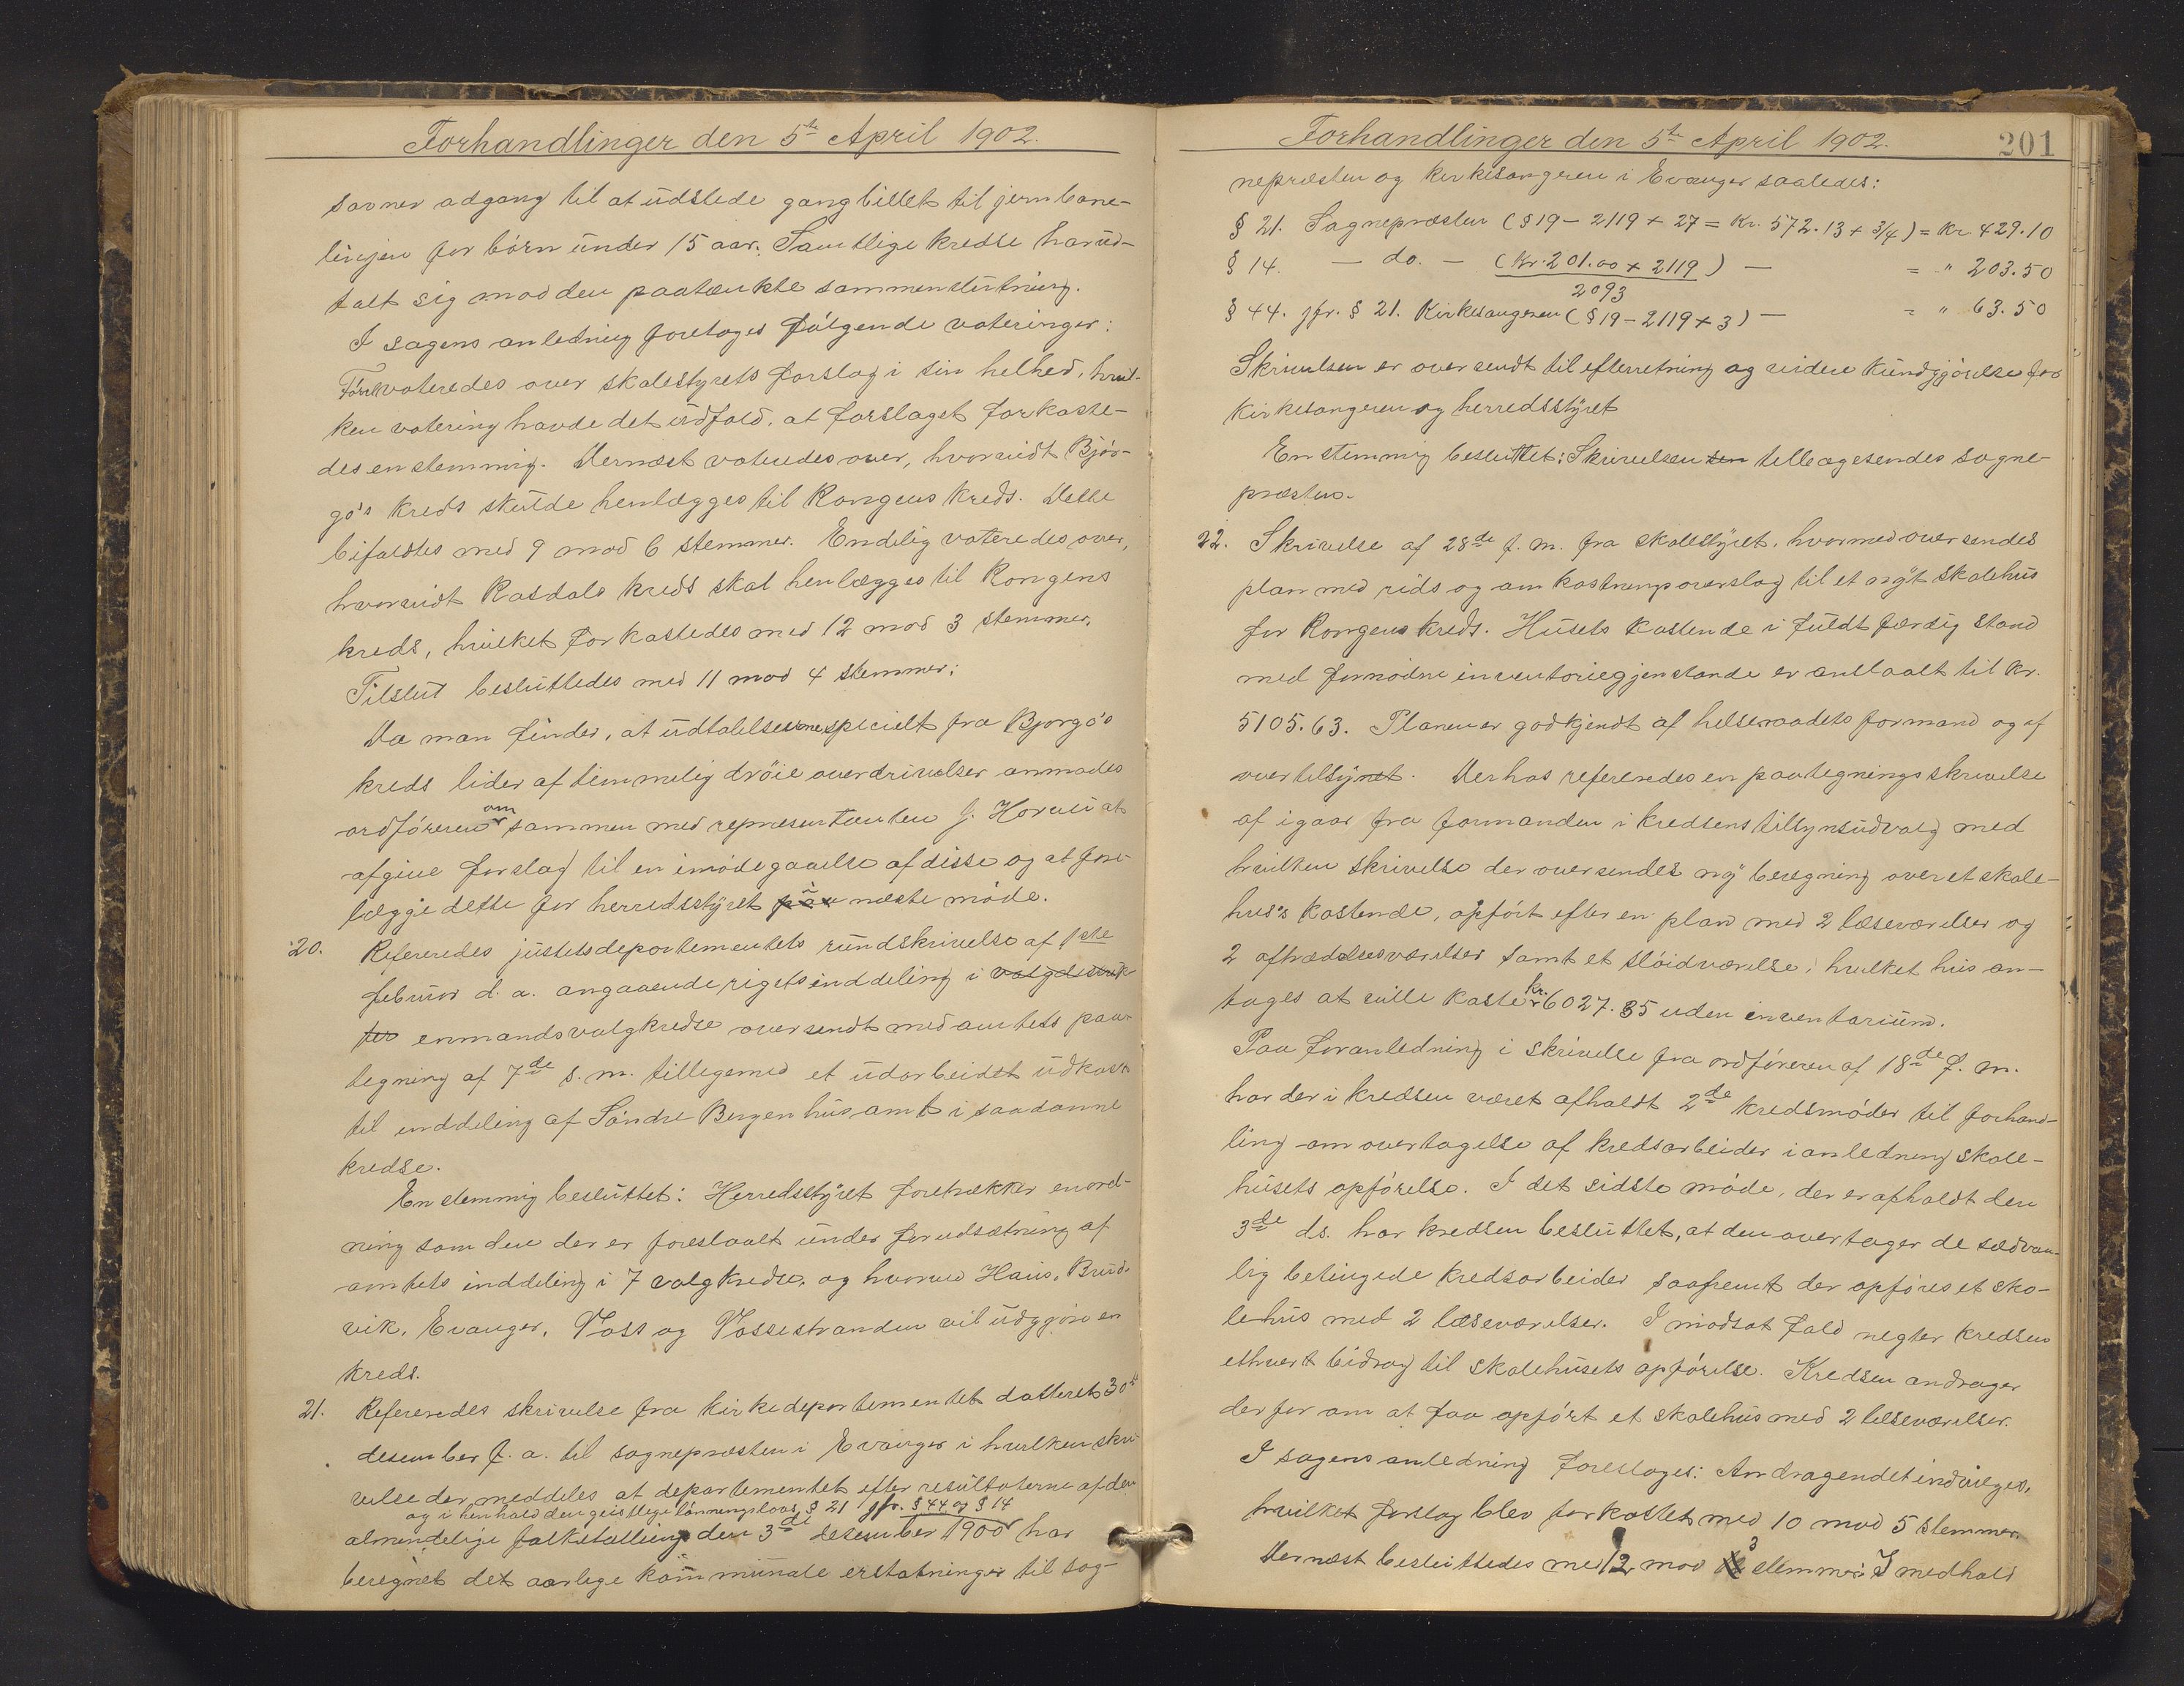 Forhandlinger den 5te April 1902.
savner adgang til at udstede gangbillet til jernbane-
linjen for børn under 15 aar. Samtlige kredse har ud-
talt sig mod den paatænkte sammenslutning.
I sagens anledning foretoges følgende voteringer:
Først voteredes over skolestyrets forslag i sin helhed, hvil-
ken votering havde det udfald, at forslaget forkaste-
des enstemmig. Dernæst voteredes over, hvorvidt Bjør-
gø's kreds skulde henlægges til Rongens kreds. Dette
bifaldtes med 9 mod 6 stemmer. Endelig voteredes over,
hvorvidt Rasdals kreds skal henlægges til Rongens
kreds, hvilket forkastedes med 12 mod 3 stemmer.
Tilslut besluttedes med 11 mod 4 stemmer:
Da man finder, at udtalelserne, specielt fra Bjørgø's
kreds lider af temmelig drøie overdrivelser anmodes
ordføreren om sammen med repræsentanten J. Horvei at
afgive forslag til en imødegaaelse af disse og at fore-
lægge dette for herredsstyret paa næste møde.
20. Refereredes justitsdepartementets rundskrivelse af 1ste
februar d. a. angaaende rigets inddeling i valgdistrik-
ter enmandsvalgkredse oversendt med amtets paa-
tegning af 7de s. m. tillegemed et udarbeidet udkast
til inddeling af Søndre Bergenhus amt i saadanne
kredse.
Enstemmig besluttet: Herredsstyret foretrækker en ord-
ning som den der er foreslaalt under forudsætning af
amtets inddeling i 7 valgkredse, og hvorved Haus, Brud-
vik, Evanger, Voss og Vossestranden vil udgjøre en
kreds.
21. Refereredes skrivelse fra kirkedepartementet datteret 30te
desember f. a. til sognepræsten i Evanger i hvilken skri-
velse der meddeles at departementet efter resultaterne af den
og i henhold den geistlige lønningslovs § 21 jfr. § 44 og § 14
almindelige folketælling den 3de desember 1900 har
beregnet det aarlige kommunale erstatninger til sog-
Forhandlinger den 5te April 1902.
201
nepræsten og kirkesangeren i Evanger saaledes:
§ 21. Sognepræsten (§ 19 - 2119 + 27 = Kr. 572.13 + 3/4) = Kr. 429.10
§ 14. — do. — (Kr. 201.00 × 2119) — = " 203.50
2093
§ 44. jfr. § 21. Kirkesangeren (§ 19 - 2119 × 3) — = " 63.50
Skrivelsen er oversendt til efterretning og videre kundgjørelse for
kirkesangeren og herredsstyret
Enstemmig besluttet: Skrivelsen sen tilbagesendes sogne-
præsten.
22. Skrivelse af 28de f. m. fra skolestyret, hvormed oversendes
plan med rids og omkostningsoverslag til et nyt skolehus
for Rongens kreds. Husets kostende i fuldt færdig stand
med fornødne inventariegjenstande er anslaalt til kr.
5105.63. Planen er godkjendt af helseraadets formand og af
overtilsynet. Derhos refereredes en paategningsskrivelse
af igaar fra formanden i kredsens tilsynsudvalg med
hvilken skrivelse der oversendes ny beregning over et skole-
hus's kostende, opført efter en plan med 2 læseværelser og
2 aftrædelsesværelser samt et sløidværelse, hvilket hus an-
tages at ville koste kr. 6027.35 uden inventarium.
Paa foranledning i skrivelse fra ordføreren af 18de f. m.
har der i kredsen været afholdt 2de kredsmøder til forhand-
ling om overtagelse af kredsarbeider i anledning skole-
husets opførelse. I det sidste møde, der er afholdt den
3de ds. har kredsen besluttet, at den overtager de sædvan-
lig betingede kredsarbeider saafremt der opføres et sko-
lehus med 2 læseværelser. I modsat fald negter kredsen
ethvert bidrag til skolehusets opførelse. Kredsen andrager
derfor om at faa opført et skolehus med 2 læseværelser.
I sagens anledning foresloges: Andragendet indvilges,
hvilket forslag blev forkastet med 10 mod 5 stemmer.
Dernæst besluttedes med 12 mod 3 stemmer: I medhold